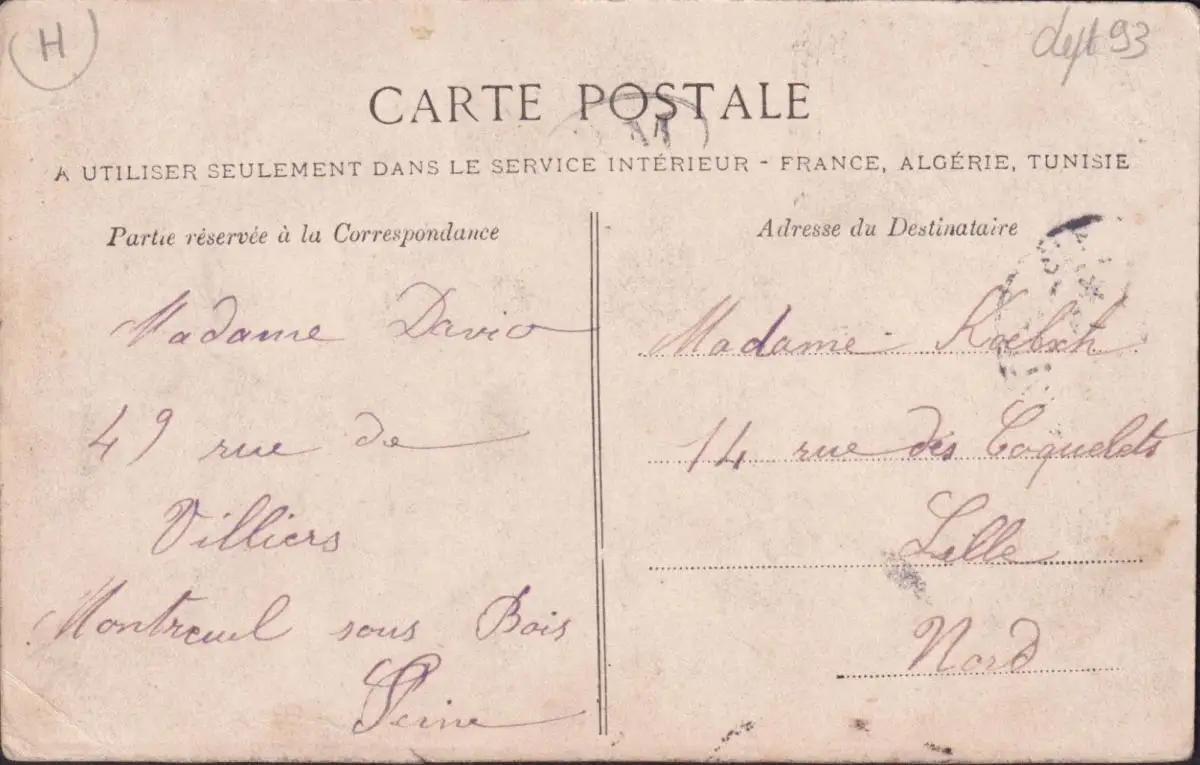 H
dept 93
CARTE POSTALE
A UTILISER SEULEMENT DANS LE SERVICE INTÉRIEUR - FRANCE, ALGÉRIE, TUNISIE
Partie réservée à la Correspondance
Madame David
49 rue de
Villiers
Montreuil sous Bois
Seine
Adresse du Destinataire
Madame
14 rue des Coquelets
Lille
Nord